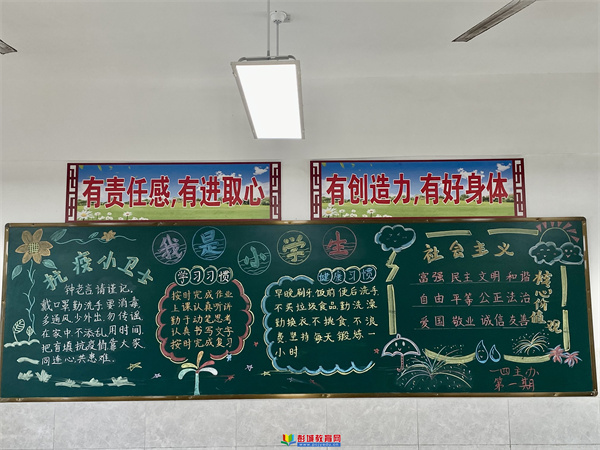 有责任感,有进取心
有创造力,有好身体
抗疫小卫士
钟老言请谨记,
戴口罩勤洗手要消毒,
多通风少外出,勿传谣
在家中不添乱,用时间
把书填,抗疫情靠大家
同连心共患难。
我是小学生
学习习惯
按时完成作业
上课认真听讲
勤于动笔思考
认真书写文字
按时完成复习
健康习惯
早晚刷牙饭前便后洗手
不买垃圾食品勤洗澡
勤换衣不挑食不浪
费坚持每天锻炼一
小时
社会主义
核心价值观
富强 民主 文明 和谐
自由 平等 公正 法治
爱国 敬业 诚信 友善
一四主办
第一期
彭城教育网